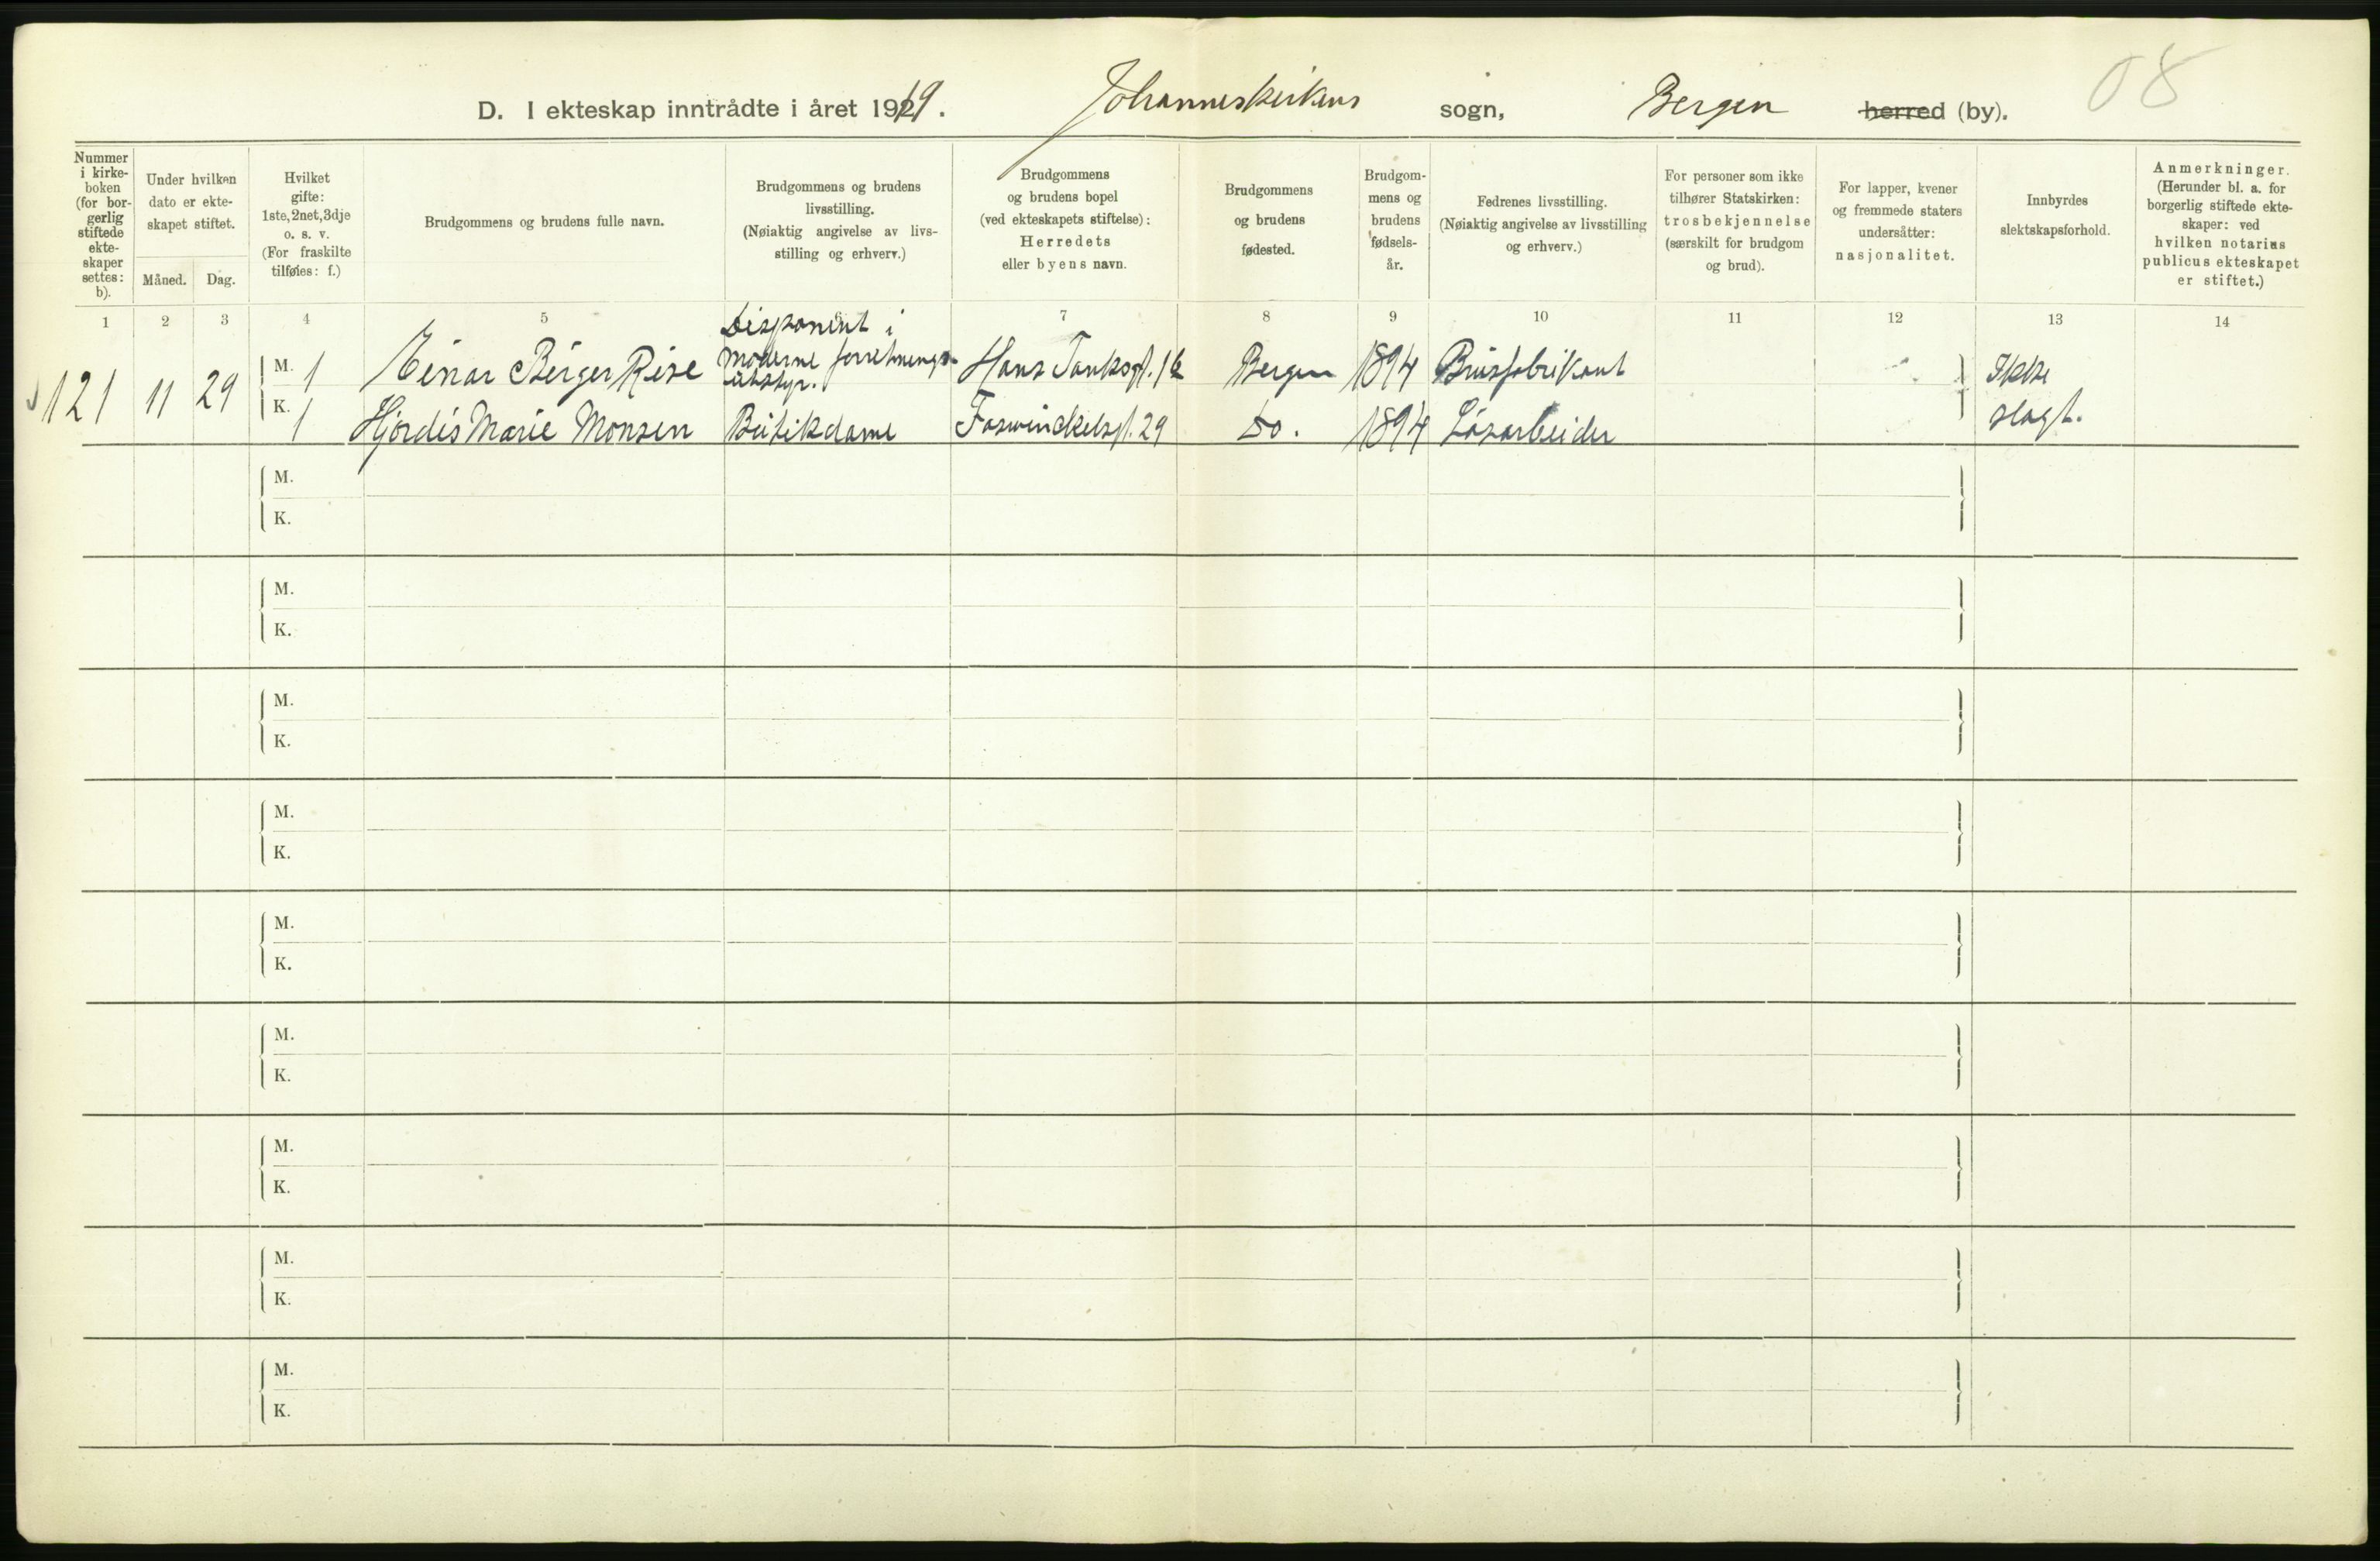 08
D. I ekteskap inntrådte i året 1919. Johanneskirkens sogn, Bergen herred (by).
Nummer i kirke-boken (for bor-gerlig stiftede ekte-skaper settes: b).
Under hvilken dato er ekte-skapet stiftet.
Måned. Dag.
Hvilket gifte: 1ste, 2net, 3dje o. s. v. (For fraskilte tilføies: f.)
Brudgommens og brudens fulle navn.
Brudgommens og brudens livsstilling. (Nøiaktig angivelse av livs-stilling og erhverv.)
Brudgommens og brudens bopel (ved ekteskapets stiftelse): Herredets eller byens navn.
Brudgommens og brudens fødested.
Brudgom-mens og brudens fødsels-år.
Fedrenes livsstilling. (Nøiaktig angivelse av livsstilling og erhverv.)
For personer som ikke tilhører Statskirken: trosbekjennelse (særskilt for brudgom og brud).
For lapper, kvener og fremmede staters undersåtter: nasjonalitet.
Innbyrdes slektskapsforhold.
Anmerkninger. (Herunder bl. a. for borgerlig stiftede ekte-skaper: ved hvilken notarius publicus ekteskapet er stiftet.)
1 2 3 4 5 7 8 9 10 11 12 13 14
121 11 29
M. 1 Einar Berger Rise Disponent i moderne forretnings utstyr. Hans Tanksgt. Bergen 1894 Brusfabrikant Ikke
K. 1 Hjördis Marie Monsen Butikdame Foswinckelsgt. 29 Do. 1894 Løsarbeider slagt.
M.
K.
M.
K.
M.
K.
M.
K.
M.
K.
M.
K.
M.
K.
M.
K.
M.
K.